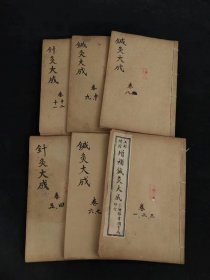 针灸大成
卷十二
十一
鍼灸大成
卷十
九
鍼灸大成
卷八
针灸大成
卷四
五
鍼灸大成
卷七
六
增補鍼灸大成
卷三
二
一